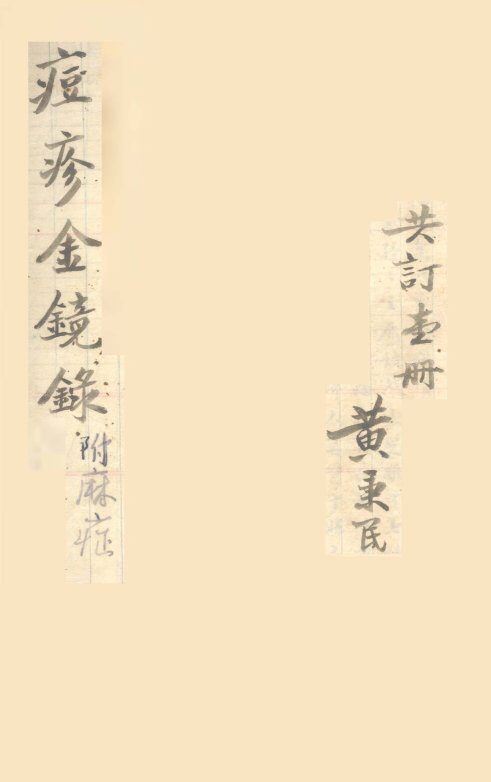 共訂壹冊
黄秉民
痘疹金鏡錄
附麻症